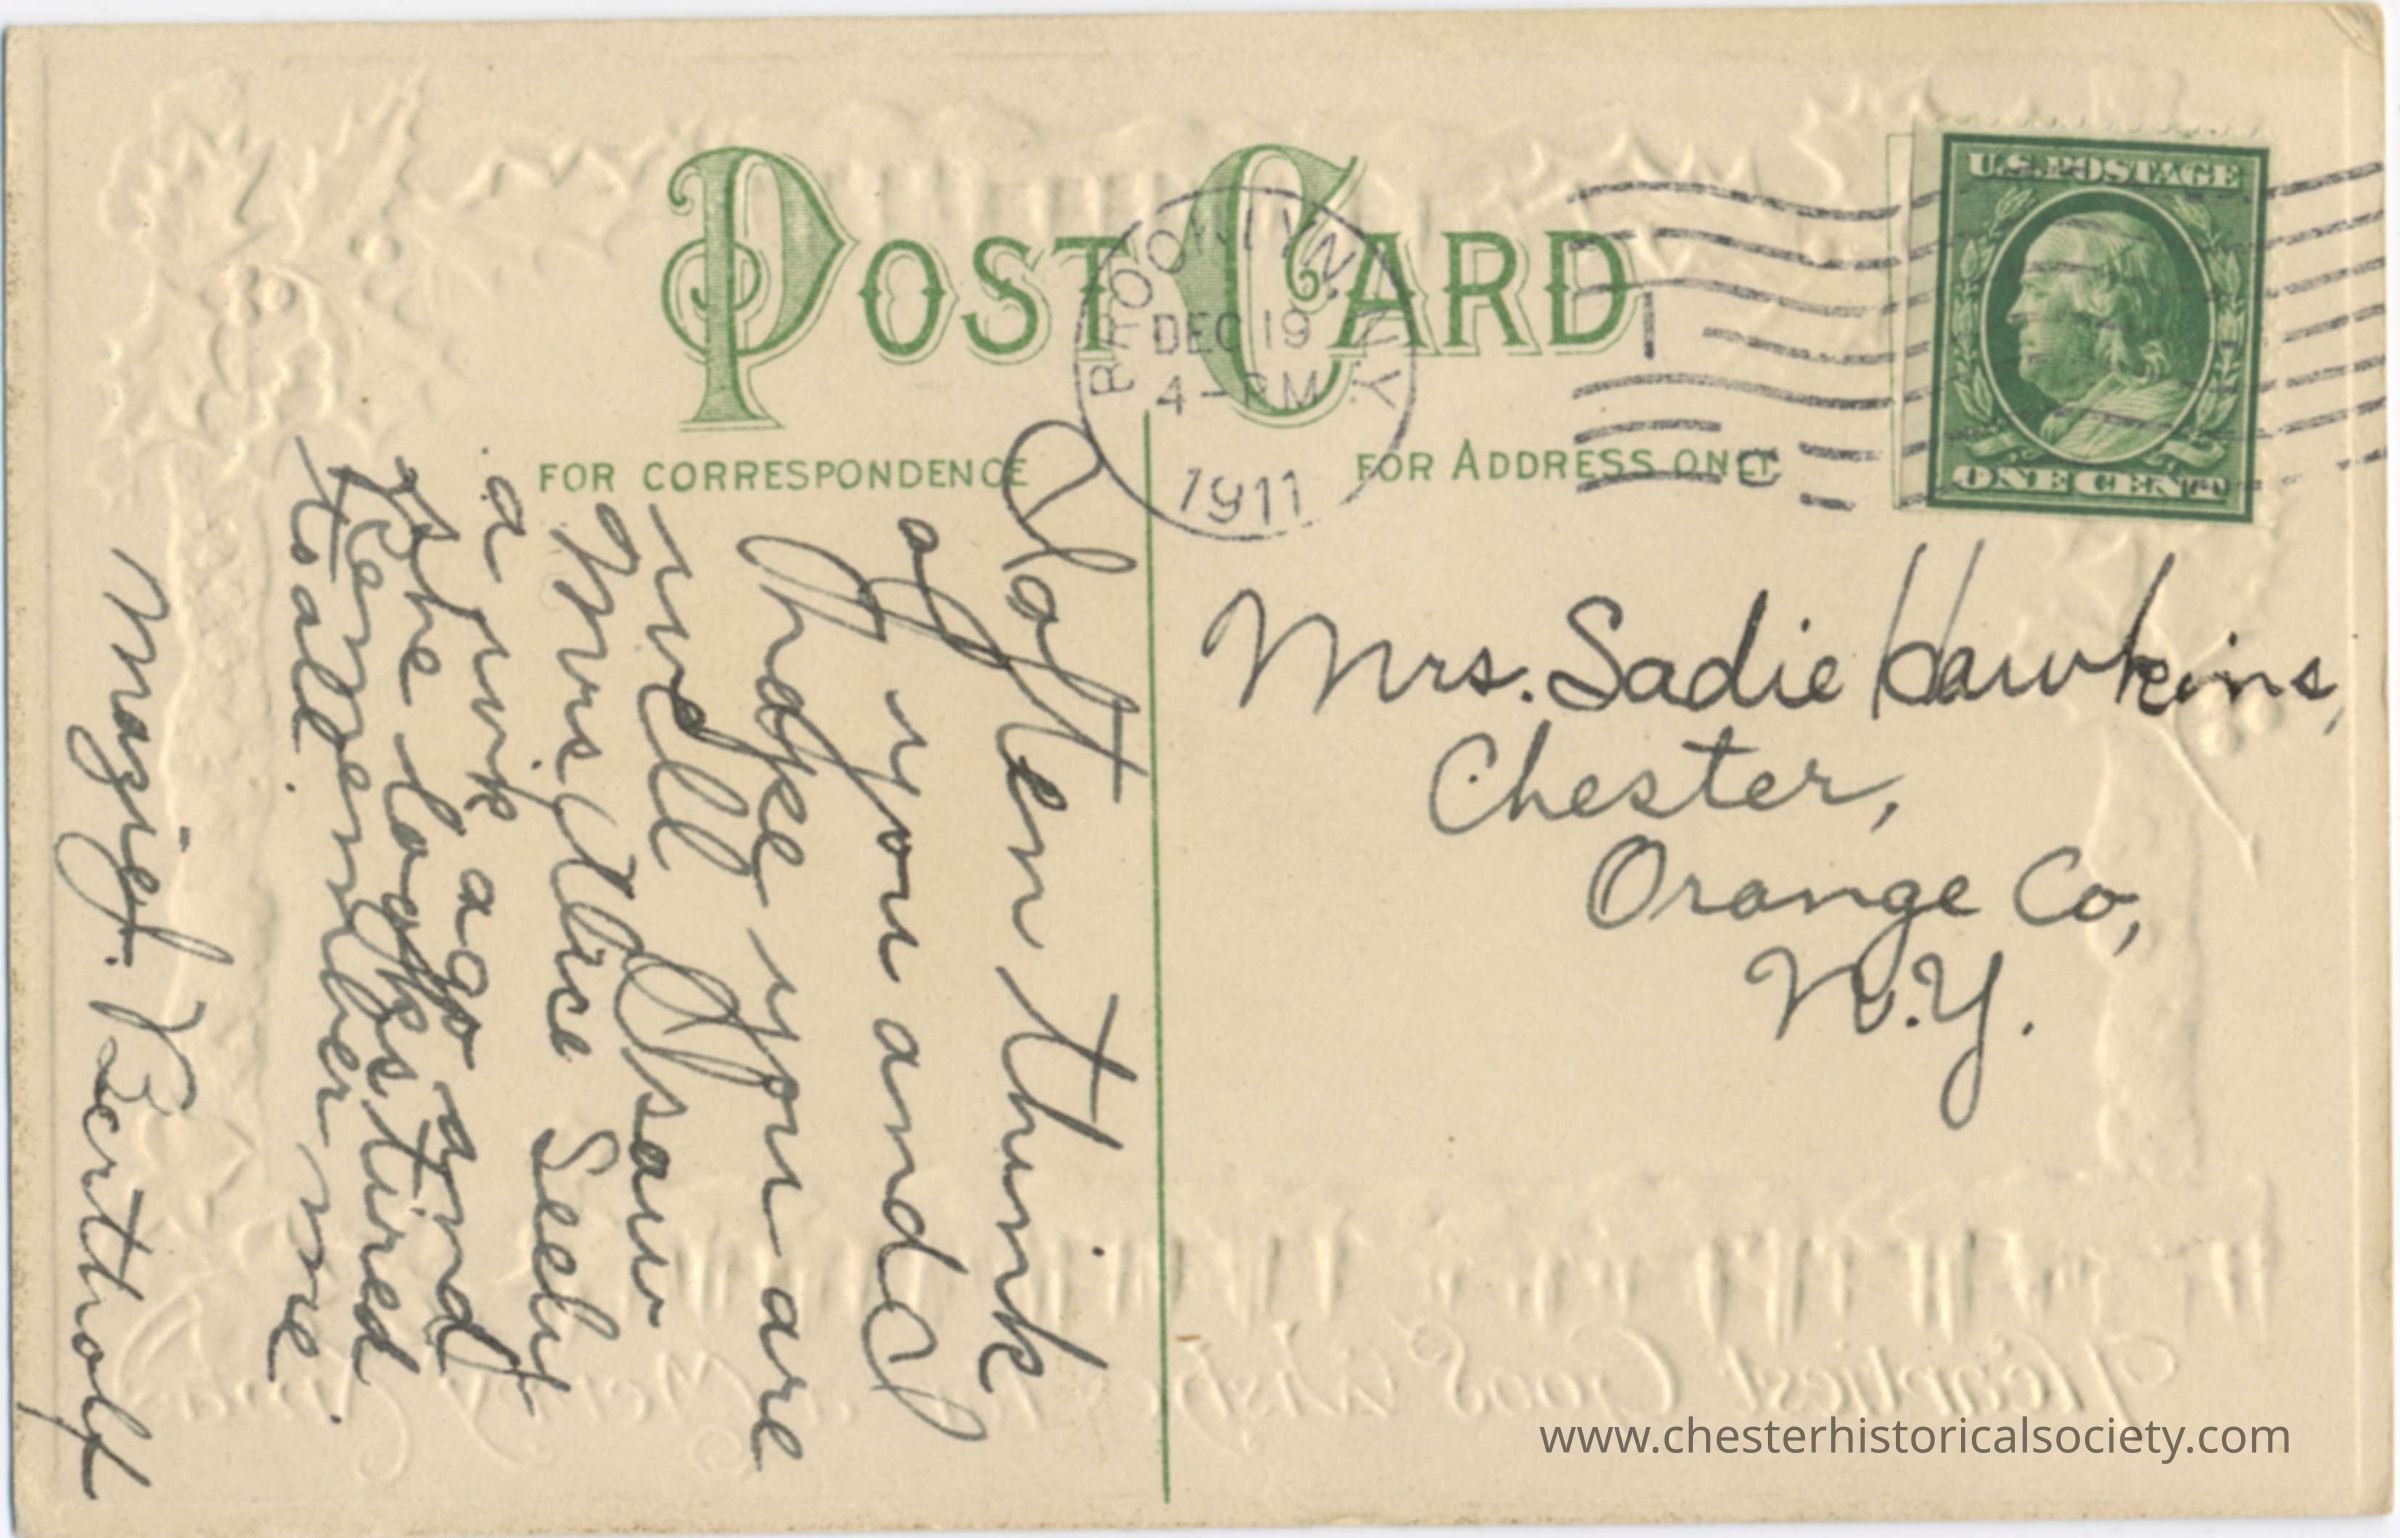 POST CARD
FOR CORRESPONDENCE
FOR ADDRESS ONLY
BROOKLYN, N.Y.
DEC 19
4-PM
1911
U.S. POSTAGE
ONE CENT
Mrs. Sadie Hawkins,
Chester,
Orange Co,
N.Y.
I often think
of you and
hope you are
well I saw
Mrs Alice Seely
a wk ago and
she looks tired
Remember me
to all.
Mazie J. Bertholf
Heartiest Good Wishes for a Merry Xmas
www.chesterhistoricalsociety.com